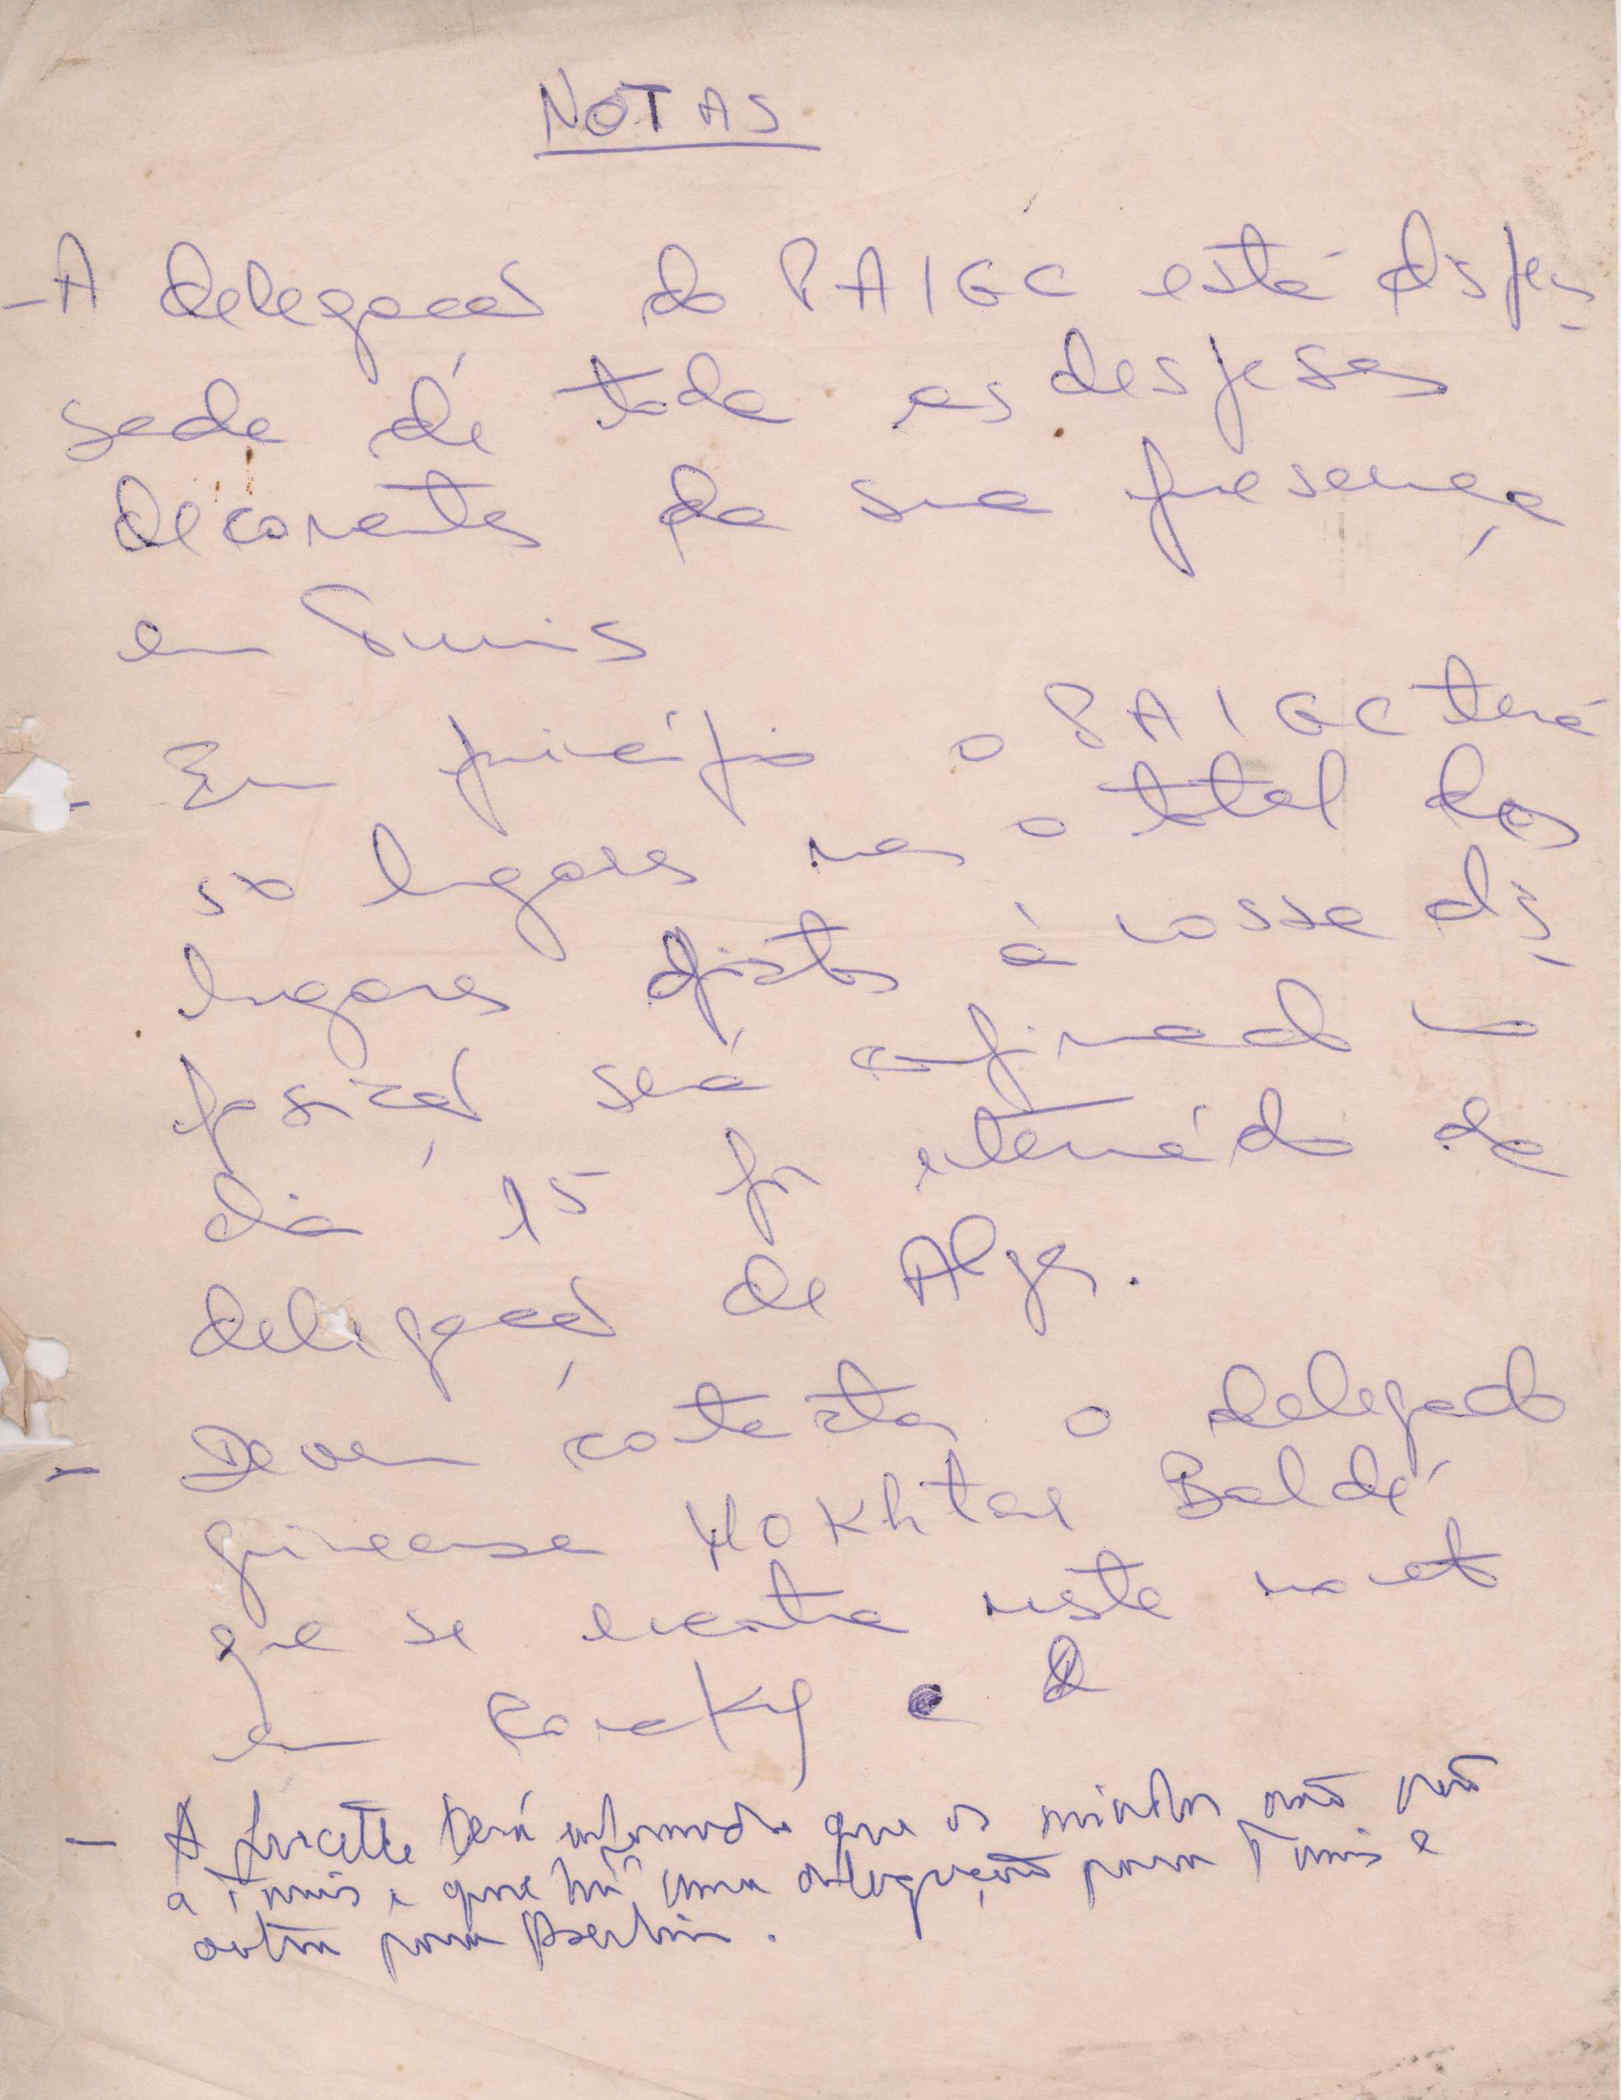 NOTAS
- A delegação do PAIGC está dispen-
sada de toda as despesas
decorrentes da sua presença
em Tunis
- Em princípio o PAIGC terá
50 lugares mas o total dos
lugares postos à vossa dis-
posição será confirmado no
dia 15 por intermédio da
delegação de Alger.
- Devem contactar o delegado
guineense Mokhtar Baldé
que se encontra neste momento
em Conakry e
- A Lucette será informada que os miúdos não irão
a Tunis e que há uma delegação para Tunis e
outra para Berlim.